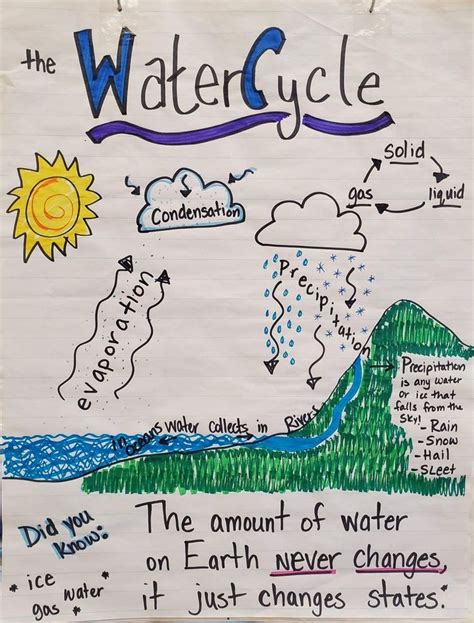 the Water Cycle
solid
gas
liquid
Condensation
Precipitation
evaporation
Precipitation
is any water
or ice that
falls from the
sky!
- Rain
- Snow
- Hail
- Sleet
in oceans water collects in Rivers
Did you
know:
* ice
water
gas *
The amount of water
on Earth never changes,
it just changes states.